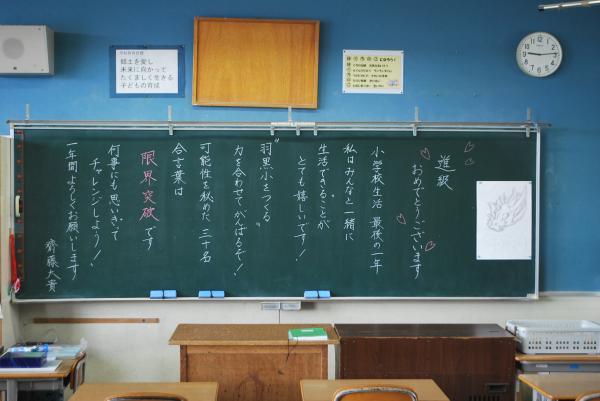 学校教育目標
郷土を愛し
未来に向かって
たくましく生きる
子どもの育成
進級
おめでとうございます
小学校生活 最後の一年
私はみんなと一緒に
生活できることが
とても嬉しいです!
"羽黒小をつくる"
力を合わせてがんばるぞ!
可能性を秘めた 三十名
合言葉は
限界突破です
何事にも思いきって
チャレンジしよう!
一年間よろしくお願いします
齊藤大貴